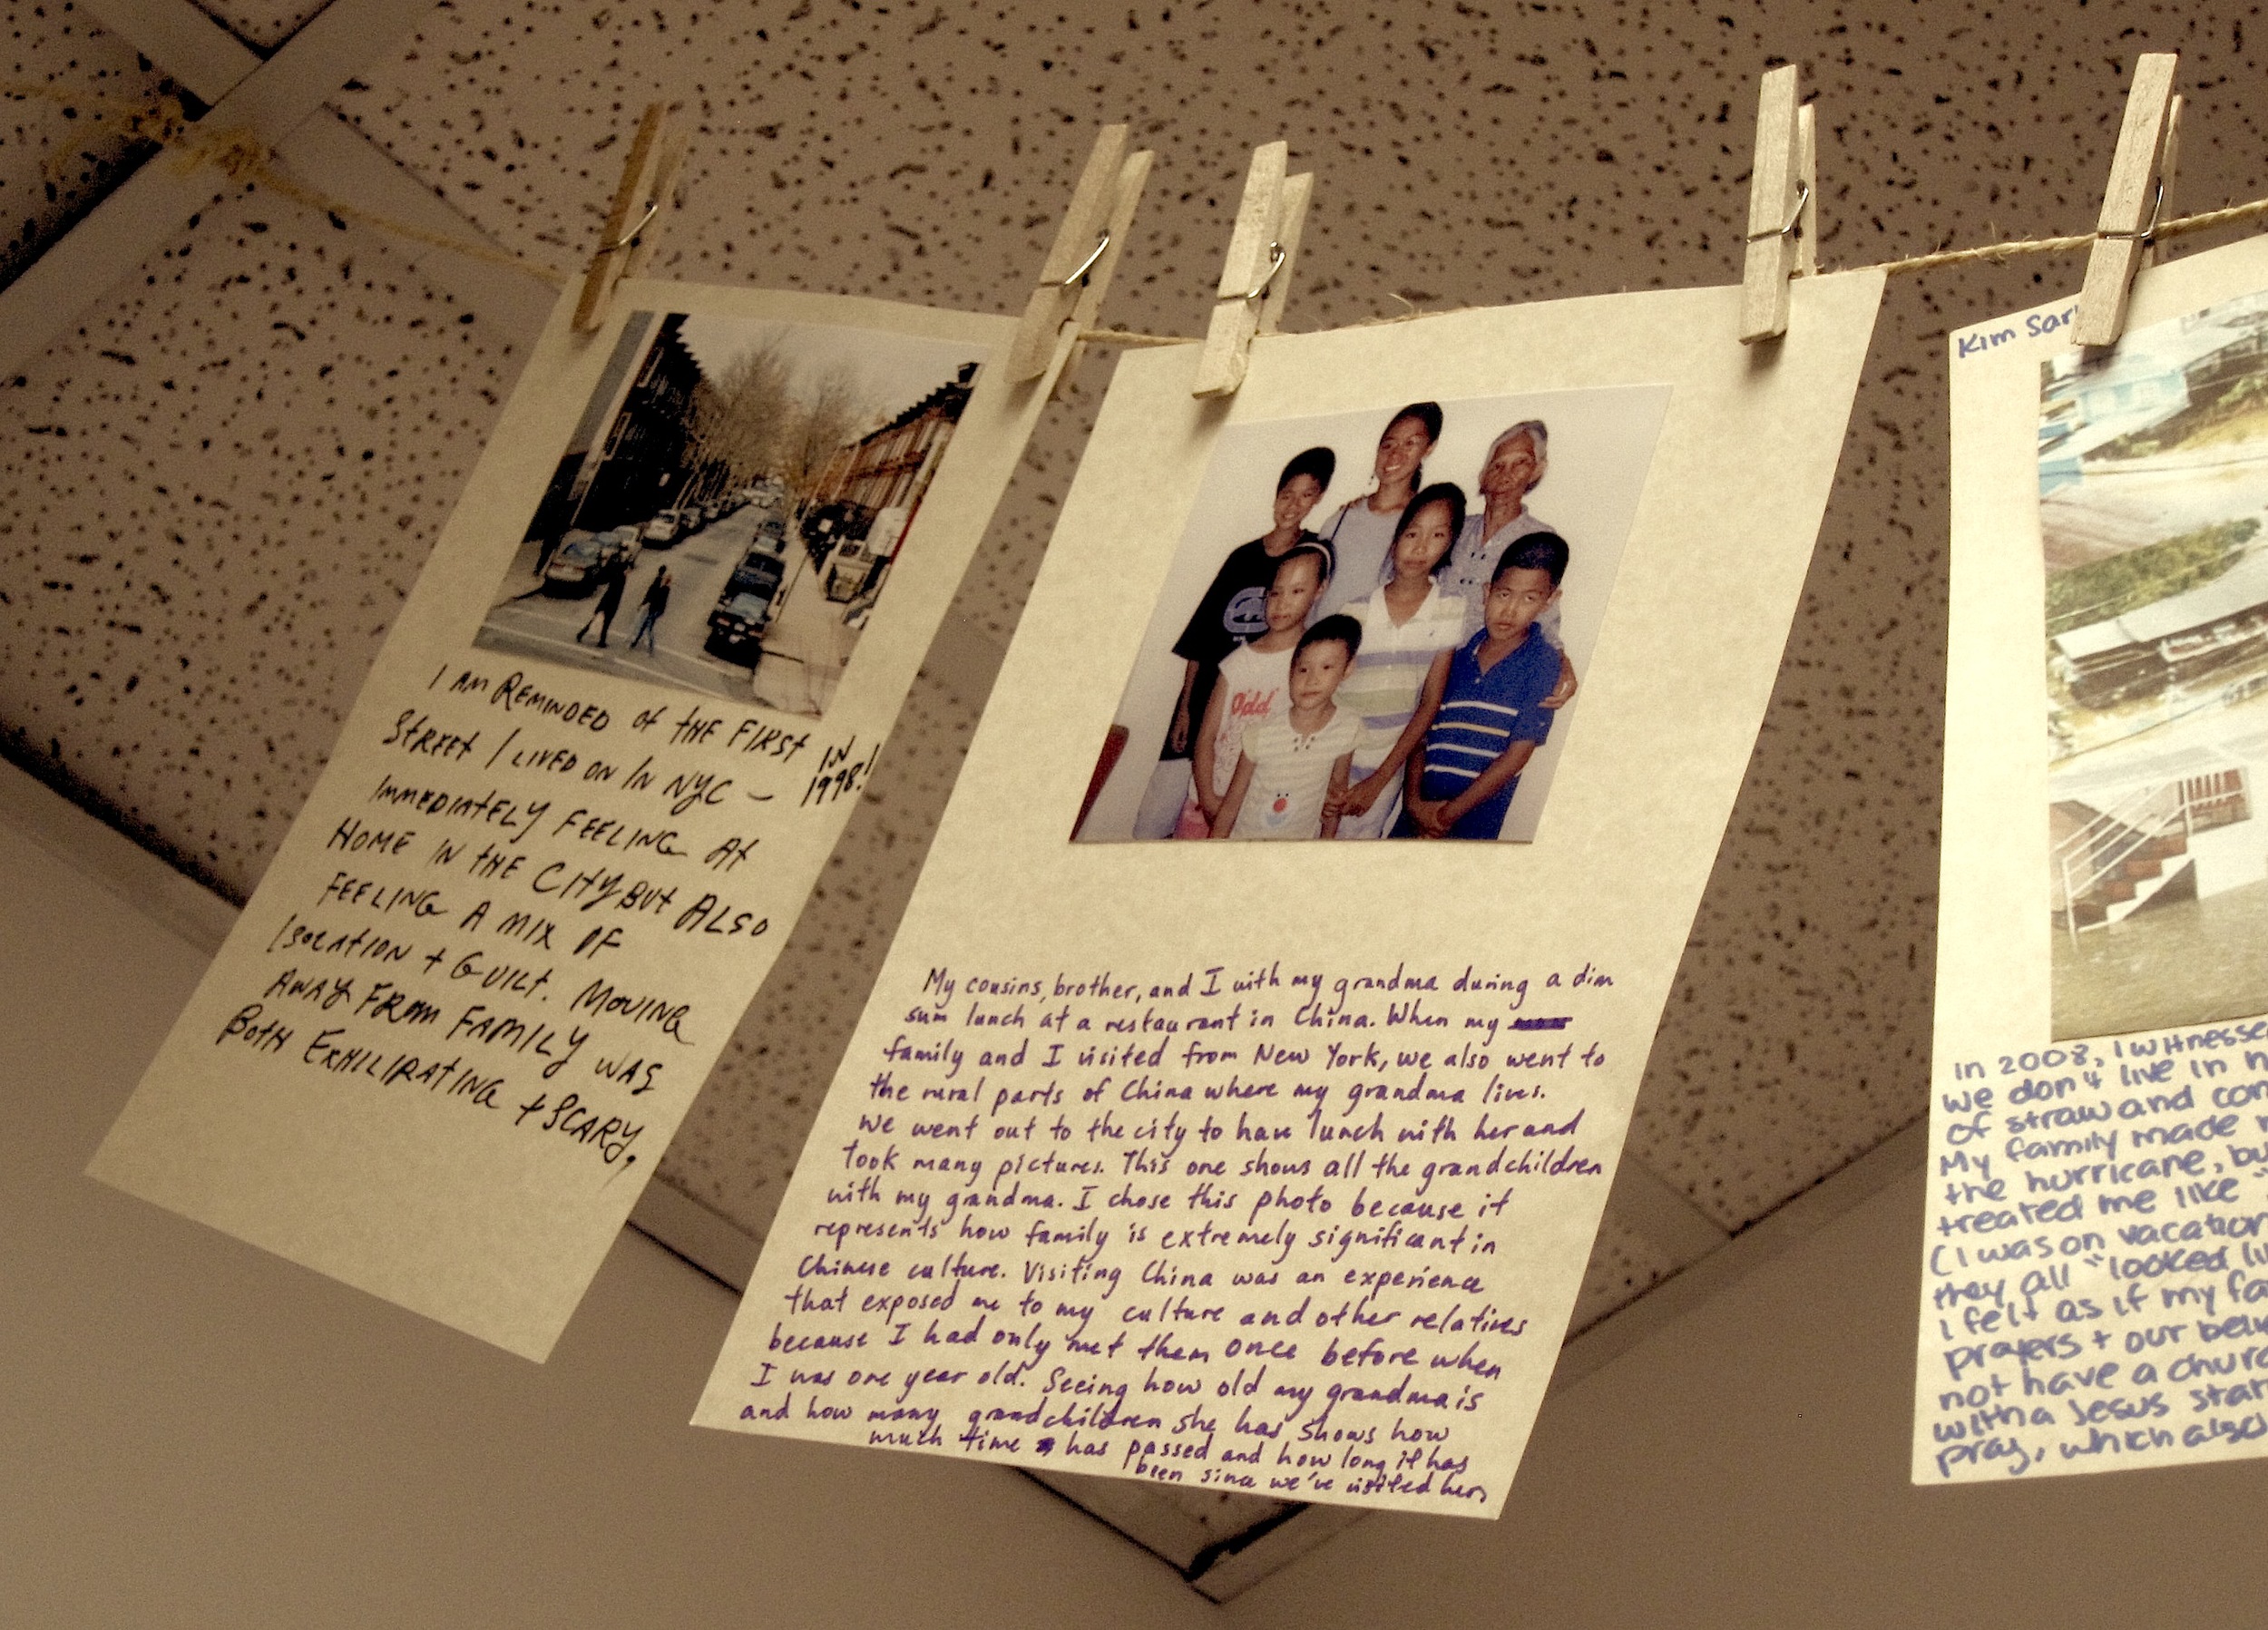 I AM REMINDED of tHE FIRSt
StREEt I LIVED ON IN NYC – IN 1998!
IMMEDIAtELY FEELING At
HOME IN tHE CItY BUt ALSO
FEELING A MIX OF
ISOLATION + GUILt. MOVING
AWAY FROM FAMILY WAS
BOtH EXHILIRAtING + SCARY.
My cousins, brother, and I with my grandma during a dim
sum lunch at a restaurant in China. When my
family and I visited from New York, we also went to
the rural parts of China where my grandma lives.
We went out to the city to have lunch with her and
took many pictures. This one shows all the grandchildren
with my grandma. I chose this photo because it
represents how family is extremely significant in
Chinese culture. Visiting China was an experience
that exposed me to my culture and other relatives
because I had only met them once before when
I was one year old. Seeing how old my grandma is
and how many grandchildren she has shows how
much time has passed and how long it has
been since we've visited her.
Kim
In 2008, I witnesse
we don't live in
of straw and con
My family made
the hurricane, bu
treated me like "
(I was on vacation
they all "looked li
I felt as if my fa
prayers + our beli
not have a churc
with a Jesus stat
pray, which also